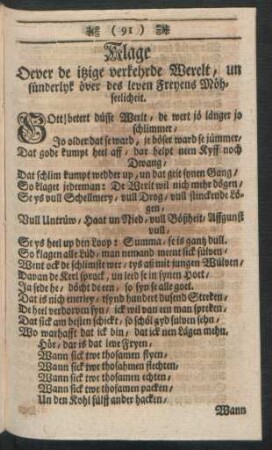 ( 91 )
Klage
Oever de itzige verkehrde Werelt / un
sünderlyk över des leven Freyens Möh-
selicheit.
GOtt betert düsse Werlt / de wert jo länger jo
schlimmer /
Jo older dat se ward / je böser ward se jümmer /
Dat gode kumpt heel aff / dar helpt neen Kyff noch
Dwang /
Dat schlim kumpt wedder up / un dat geit synen Gang /
So klaget jederman: De Werlt wil nich mehr dögen /
Se ys vull Schellmery / vull Drog / vull stinckende Lö-
gen /
Vull Untrüw / Haat un Nied / vull Bößheit / Affgunst
vull /
Se ys heel up den Loop: Summa / se is gantz dull.
So klagen alle Lüd / man nemand ment sick sülven /
Went ock de schlimste wer / tys as mit jungen Wülven /
Davan de Kerl sprack / un leid se in synen Hoet /
Ja sede he / döcht de een / so syn se alle goet.
Dat is nich enerley / tsynd hundert dusend Streken /
De heel verdorven syn / ick wil van een man spreken /
Dat sick am besten schickt / so schöl gyd sülven sehn /
Wo warhafft dat ick bin / dat ick nen Lägen mehn.
Hör / dar is dat leve Freyen /
Wann sick twe thosamen flyen /
Wann sick twe thosahmen flechten /
Wann sick twe thosamen echten /
Wann sick twe thosamen packen /
Un den Kohl sülff ander hacken /
Wann